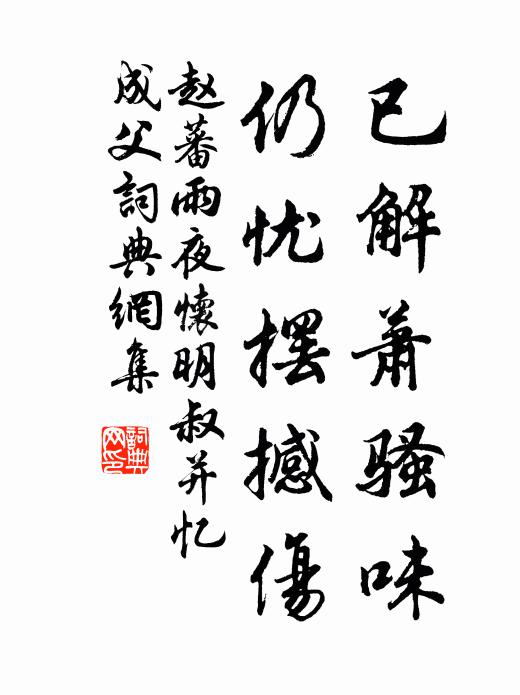 已解萧骚味
仍忧摆撼傷
赵蕃雨夜懷明叔并忆
成父詞典網集
詞典网印